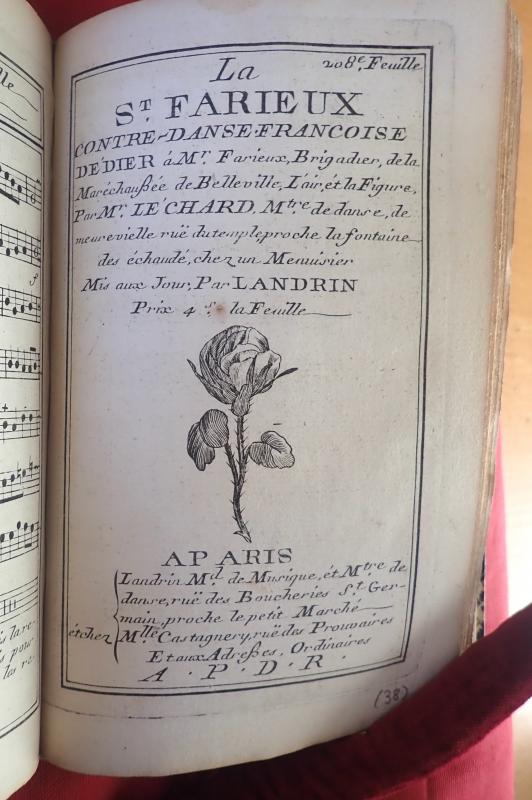 La
208.e Feuille
S.T FARIEUX
CONTRE-DANSE-FRANCOISE
DÉDIER á M.r Farieux, Brigadier, de la
Maréchaußée de Belleville, L'air, ét la Figure,
Par M.r LÉCHARD, M.tre de danse, de
meure vielle ruë du temple proche la fontaine
des échaudé, chez un Menuisier
Mis aux Jour, Par LANDRIN
Prix 4 s. la Feuille
AP ARIS
Landrin M.d de Musique, ét M.tre de
danse, ruë des Boucheries S.t Ger-
main, proche le petit Marché
ét chez M.lle Castagnery, ruë des Prouvaires
Et aux Adreßes, Ordinaires
A . P . D . R .
(38)